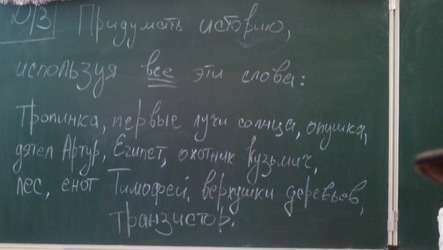 Д/З Придумать историю,
используя все эти слова:
Тропинка, первые лучи солнца, опушка,
дятел Артур, Египет, охотник Кузьмич,
лес, енот Тимофей, верхушки деревьев,
транзистор.